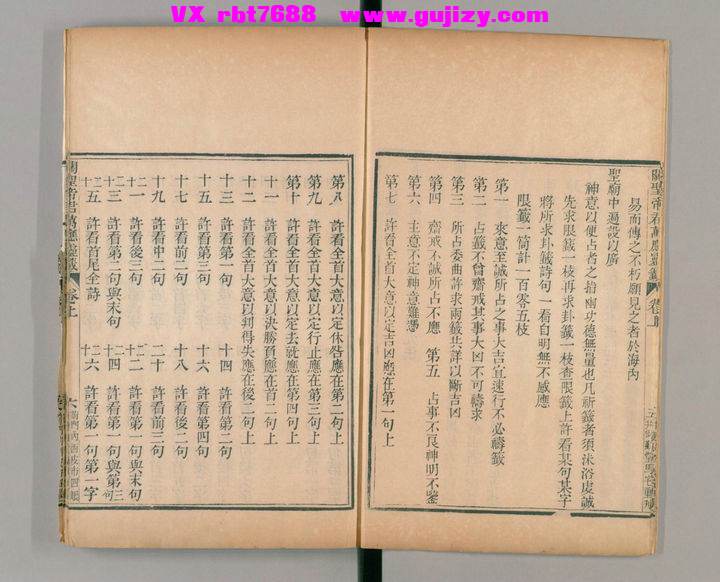 VX rbt7688 www.gujizy.com
關聖帝君萬應靈籤 卷首
易而傳之不朽願見之者於海內
聖廟中遍設以廣
神意以便占者之指幽功德無量也凡祈籤者須沐浴虔誠
先求限籤一枝再求卦籤一枝查限籤上許看某句某字
將所求卦籤詩句一看自明無不感應
限籤一筒計一百零五枝
第一 來意至誠所占之事大吉宜速行不必禱籤
第二 占籤不曾齋戒其事大凶不可禱求
第三 所占委曲許求兩籤共詳以斷吉凶
第四 齋戒不誠所占不應 第五 占事不良神明不鑒
第六 主意不定神意難憑
第七 許看全首大意以定吉凶應在第一句上
第八 許看全首大意以定休咎應在第二句上
第九 許看全首大意以定行止應在第三句上
第十 許看全首大意以定去就應在第四句上
十一 許看全首大意以決勝負應在首二句上
十二 許看全首大意以判得失應在後二句上
十三 許看第一句 十四 許看第二句
十五 許看第三句 十六 許看第四句
十七 許看前二句 十八 許看後二句
十九 許看中二句 二十 許看前三句
二十一 許看後三句 二十二 許看第一句與末句
二十三 許看第二句與末句 二十四 許看第一句與第三句
二十五 許看首尾全詩 二十六 許看第一句第一字
關聖帝君萬應靈籤 卷上 六